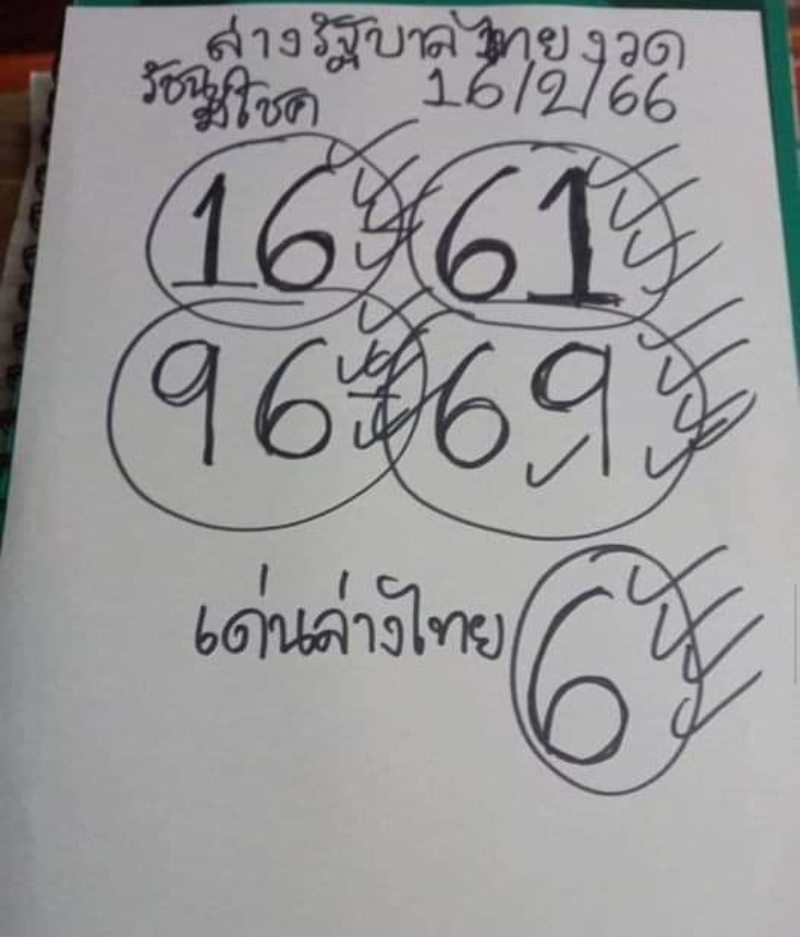 ล่างรัฐบาลไทย งวด
รัชนีมีโชค 16/2/66
16 61
96 69
เด่นล่างไทย 6